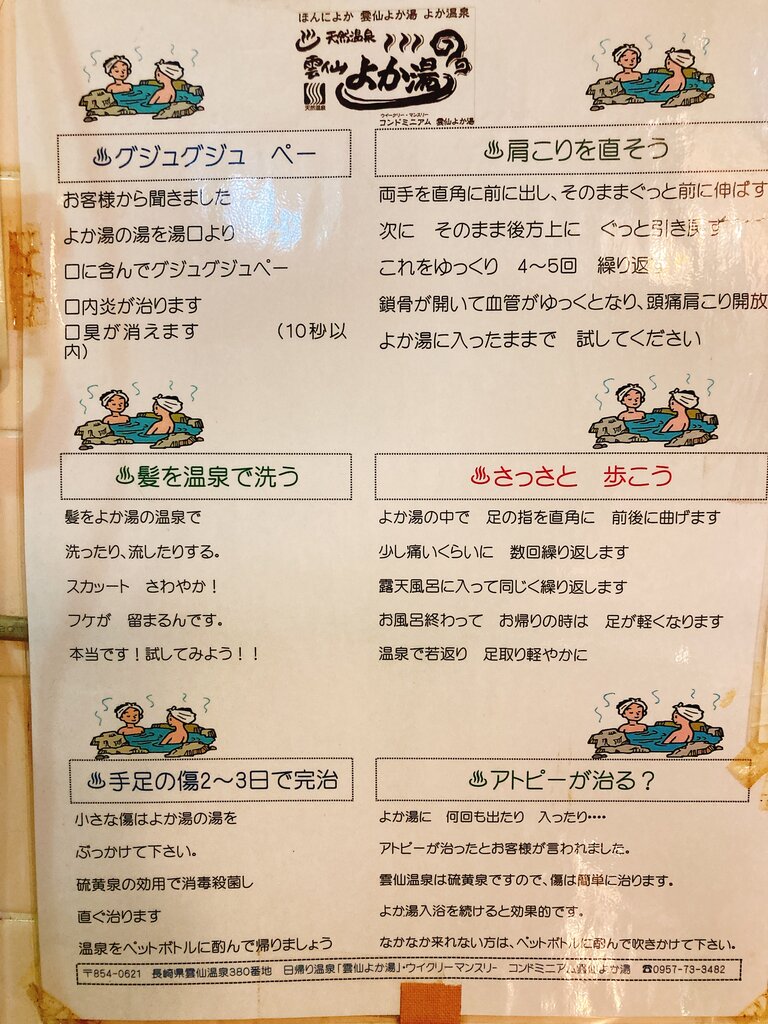 ほんによか 雲仙よか湯 よか温泉
天然温泉
雲仙
よか湯
天然温泉
ウイークリー・マンスリー
コンドミニアム 雲仙よか湯
♨グジュグジュ ペー
お客様から聞きました
よか湯の湯を湯口より
口に含んでグジュグジュペー
口内炎が治ります
口臭が消えます (10秒以
内)
♨肩こりを直そう
両手を直角に前に出し、そのままぐっと前に伸ばす
次に そのまま後方上に ぐっと引き戻す
これをゆっくり 4～5回 繰り返
鎖骨が開いて血管がゆっくとなり、頭痛肩こり開放
よか湯に入ったままで 試してください
♨髪を温泉で洗う
髪をよか湯の温泉で
洗ったり、流したりする。
スカッート さわやか！
フケが 留まるんです。
本当です！試してみよう！！
♨さっさと 歩こう
よか湯の中で 足の指を直角に 前後に曲げます
少し痛いくらいに 数回繰り返します
露天風呂に入って同じく繰り返します
お風呂終わって お帰りの時は 足が軽くなります
温泉で若返り 足取り軽やかに
♨手足の傷2～3日で完治
小さな傷はよか湯の湯を
ぶっかけて下さい。
硫黄泉の効用で消毒殺菌し
直ぐ治ります
温泉をペットボトルに酌んで帰りましょう
♨アトピーが治る？
よか湯に 何回も出たり 入ったり････
アトピーが治ったとお客様が言われました。
雲仙温泉は硫黄泉ですので、傷は簡単に治ります。
よか湯入浴を続けると効果的です。
なかなか来れない方は、ペットボトルに酌んで吹きかけて下さい。
〒854-0621 長崎県雲仙温泉380番地 日帰り温泉「雲仙よか湯」・ウイクリーマンスリー コンドミニアム雲仙よか湯 ☎0957-73-3482